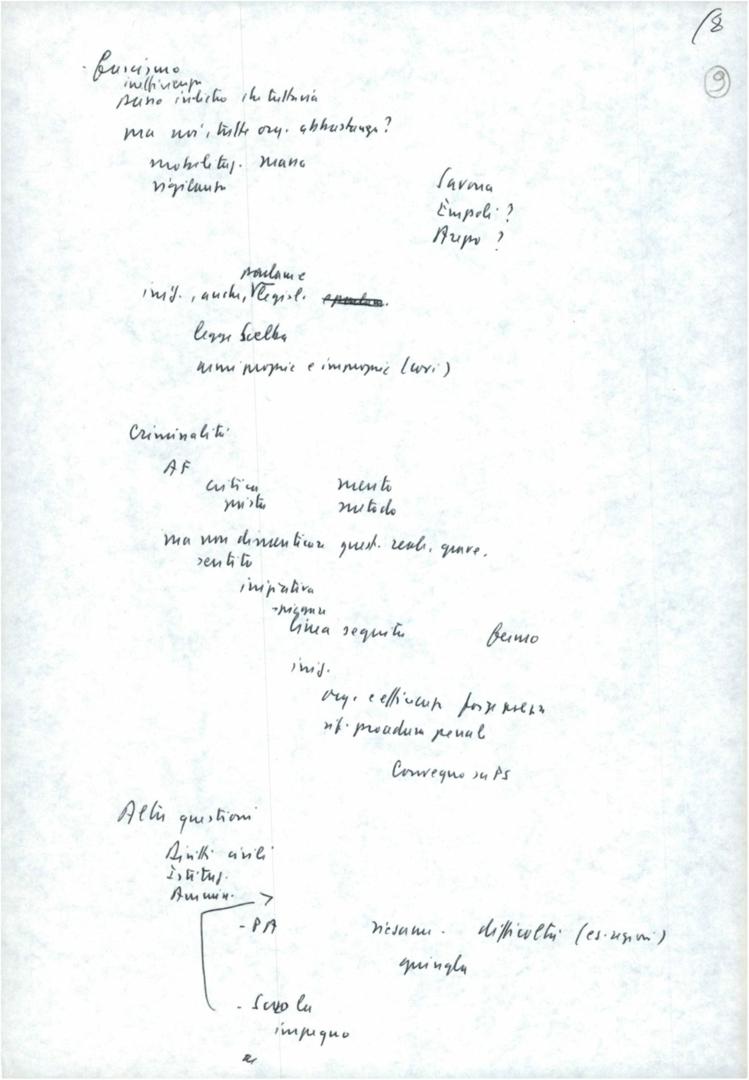 /8
9
- fascismo
inefficienza
meno indietro che tuttavia
ma noi, tutte org. abbastanza?
mobilitaz. massa
vigilanza
Savona
Empoli?
Arezzo?
iniz., anche, legisl.
legge Scelba
armi proprie e improprie (covi)
Criminalità
AF
critica merito
giusta metodo
ma non dimenticare quest. reale, grave,
sentita
iniziativa
linea seguita fermo
iniz.
org. e efficienza forze polizia
rif. procedura penale
Convegno su PS
Altre questioni
Diritti civili
Istituz.
Ammin.
- PA riesame. difficoltà (es. regioni)
- Scuola
impegno